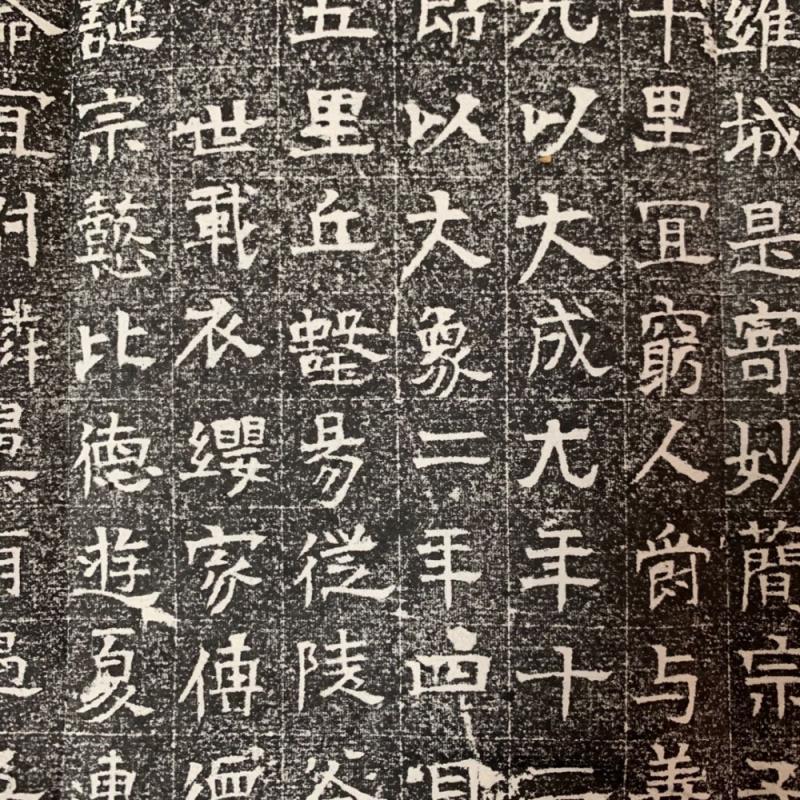 維城是寄妙簡宗子
十里冝窮人爵与善
九以大成元年十二
以大象二年四月
五里丘壑易從陵谷
世載衣纓家傳
誕宗懿比德遊夏連
命冝